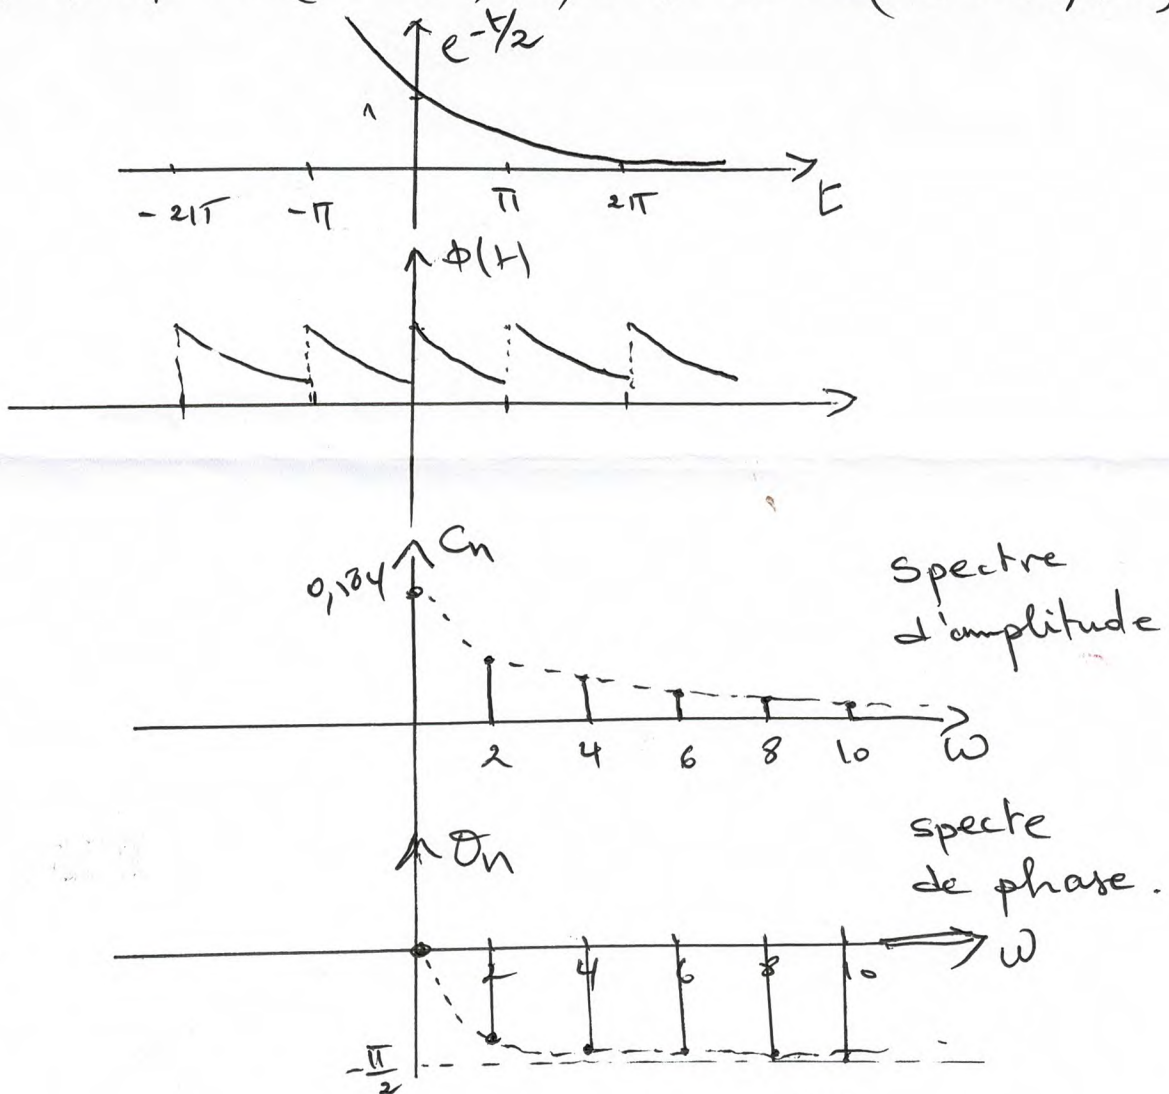 e^{-t/2}
1
-2π -π π 2π t
φ(t)
Cn
0,504
Spectre
d'amplitude
2 4 6 8 10 ω
θn
specte
de phase.
2 4 6 8 10 ω
-π/2